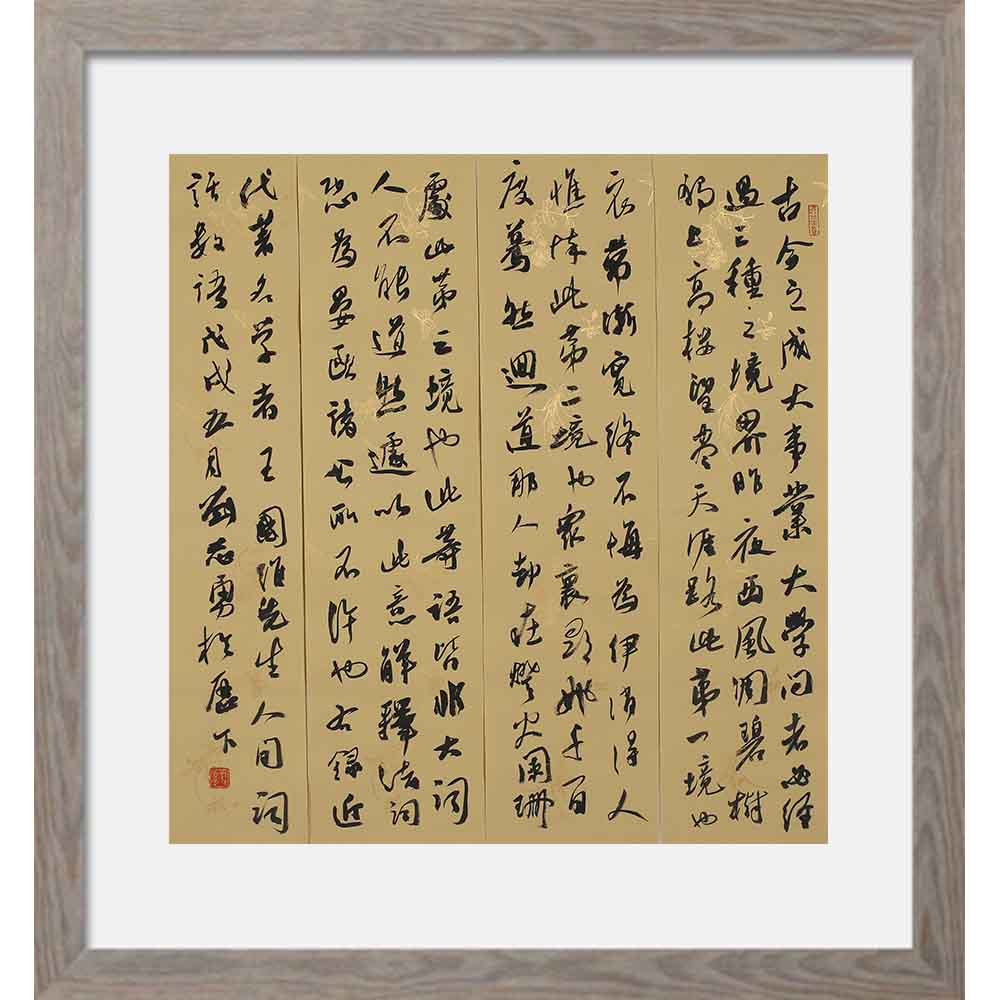 古今之成大事業大學问者必经
過三種之境界昨夜西風凋碧樹
獨上高楼望尽天涯路此第一境也
衣带渐宽终不悔為伊消得人
憔悴此第二境也衆裏尋他千百
度驀然迴道那人却在燈火阑珊
處此第三境也此等語皆非大词
人不能道然遽以此意解釋諸词
恐為晏歐諸公所不许也右録近
代著名学者王國维先生人间词
話数語戊戌五月劉志勇於歷下